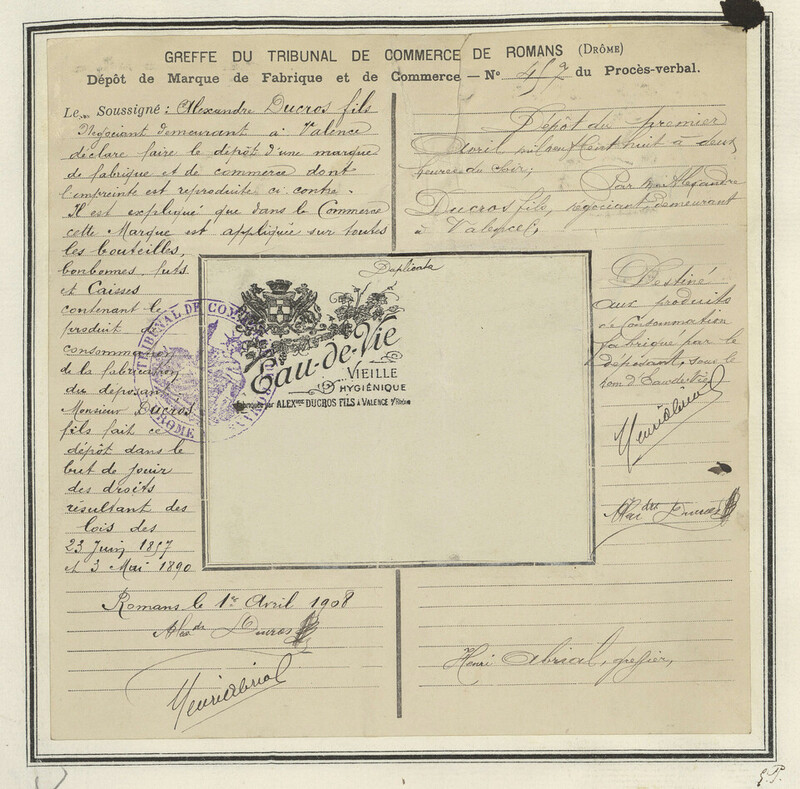 GREFFE DU TRIBUNAL DE COMMERCE DE ROMANS (DRÔME)
Dépôt de Marque de Fabrique et de Commerce — N° 457 du Procès-verbal.
Le Soussigné : Alexandre Ducros fils
Négociant demeurant à Valence
déclare faire le dépôt d'une marque
de fabrique et de commerce dont
l'empreinte est reproduite ci contre.
Il est expliqué que dans le Commerce
cette Marque est appliquée sur toutes
les bouteilles,
bonbonnes, futs
et Caisses
contenant le
produit de
consommation
de la fabrication
du déposant
Monsieur Ducros
fils fait ce
dépôt dans le
but de jouir
des droits
résultant des
lois des
23 Juin 1857
et 3 Mai 1890
Romans le 1er Avril 1908
Alexdre Ducros
Henri Abrial
Dépôt du premier
Avril mil neuf cent huit à deux
heures du soir;
Par Mr Alexandre
Ducros fils, négociant demeurant
à Valence,
Duplicata
Eau-de-Vie
VIEILLE
HYGIÉNIQUE
par ALEXDRE DUCROS FILS À VALENCE S/RHÔNE
TRIBUNAL DE COMMERCE
DROME
Destiné
aux produits
de Consommation
fabriqué par le
déposant, sous le
nom d'Eau de Vie
Henri Abrial
Alexdre Ducros
Henri Abrial, greffier,
E.P.